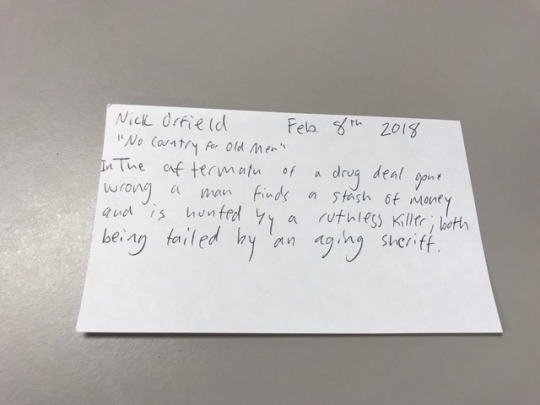 Nick Orfield Feb. 8th 2018
"No Country for Old Men"
In The aftermath of a drug deal gone
wrong a man finds a stash of money
and is hunted by a ruthless killer; both
being tailed by an aging sheriff.